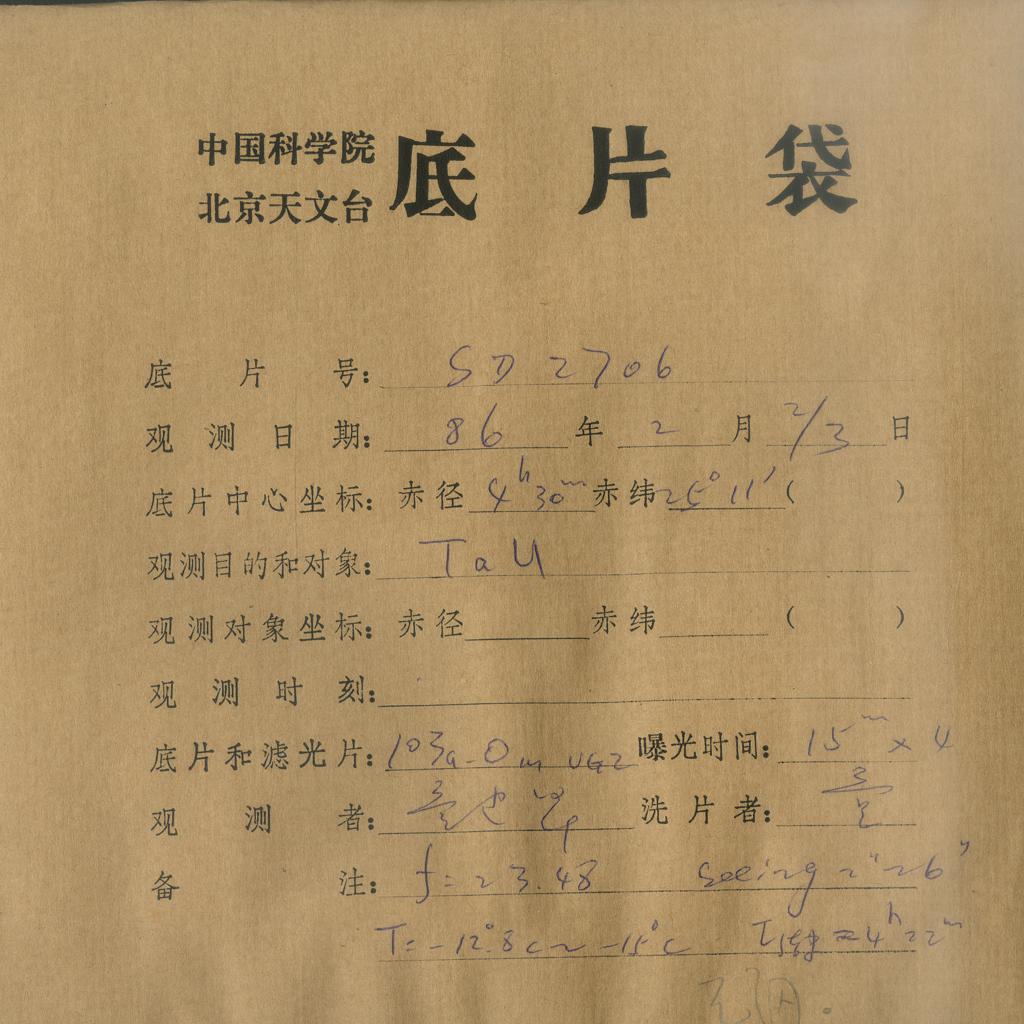 中国科学院
北京天文台
底片袋
底片号: SD 2706
观测日期: 86 年 2 月 2/3 日
底片中心坐标: 赤径 4h 30m 赤纬 25° 11′ ( )
观测目的和对象: Tau
观测对象坐标: 赤径 赤纬 ( )
观测时刻:
底片和滤光片: 103a-O UG2 曝光时间: 15m × 4
观测者: 洗片者:
备注: f = 23.48 Seeing 2″~6″
T = -12°.8c ~ -15°c ≈ 4h 22m